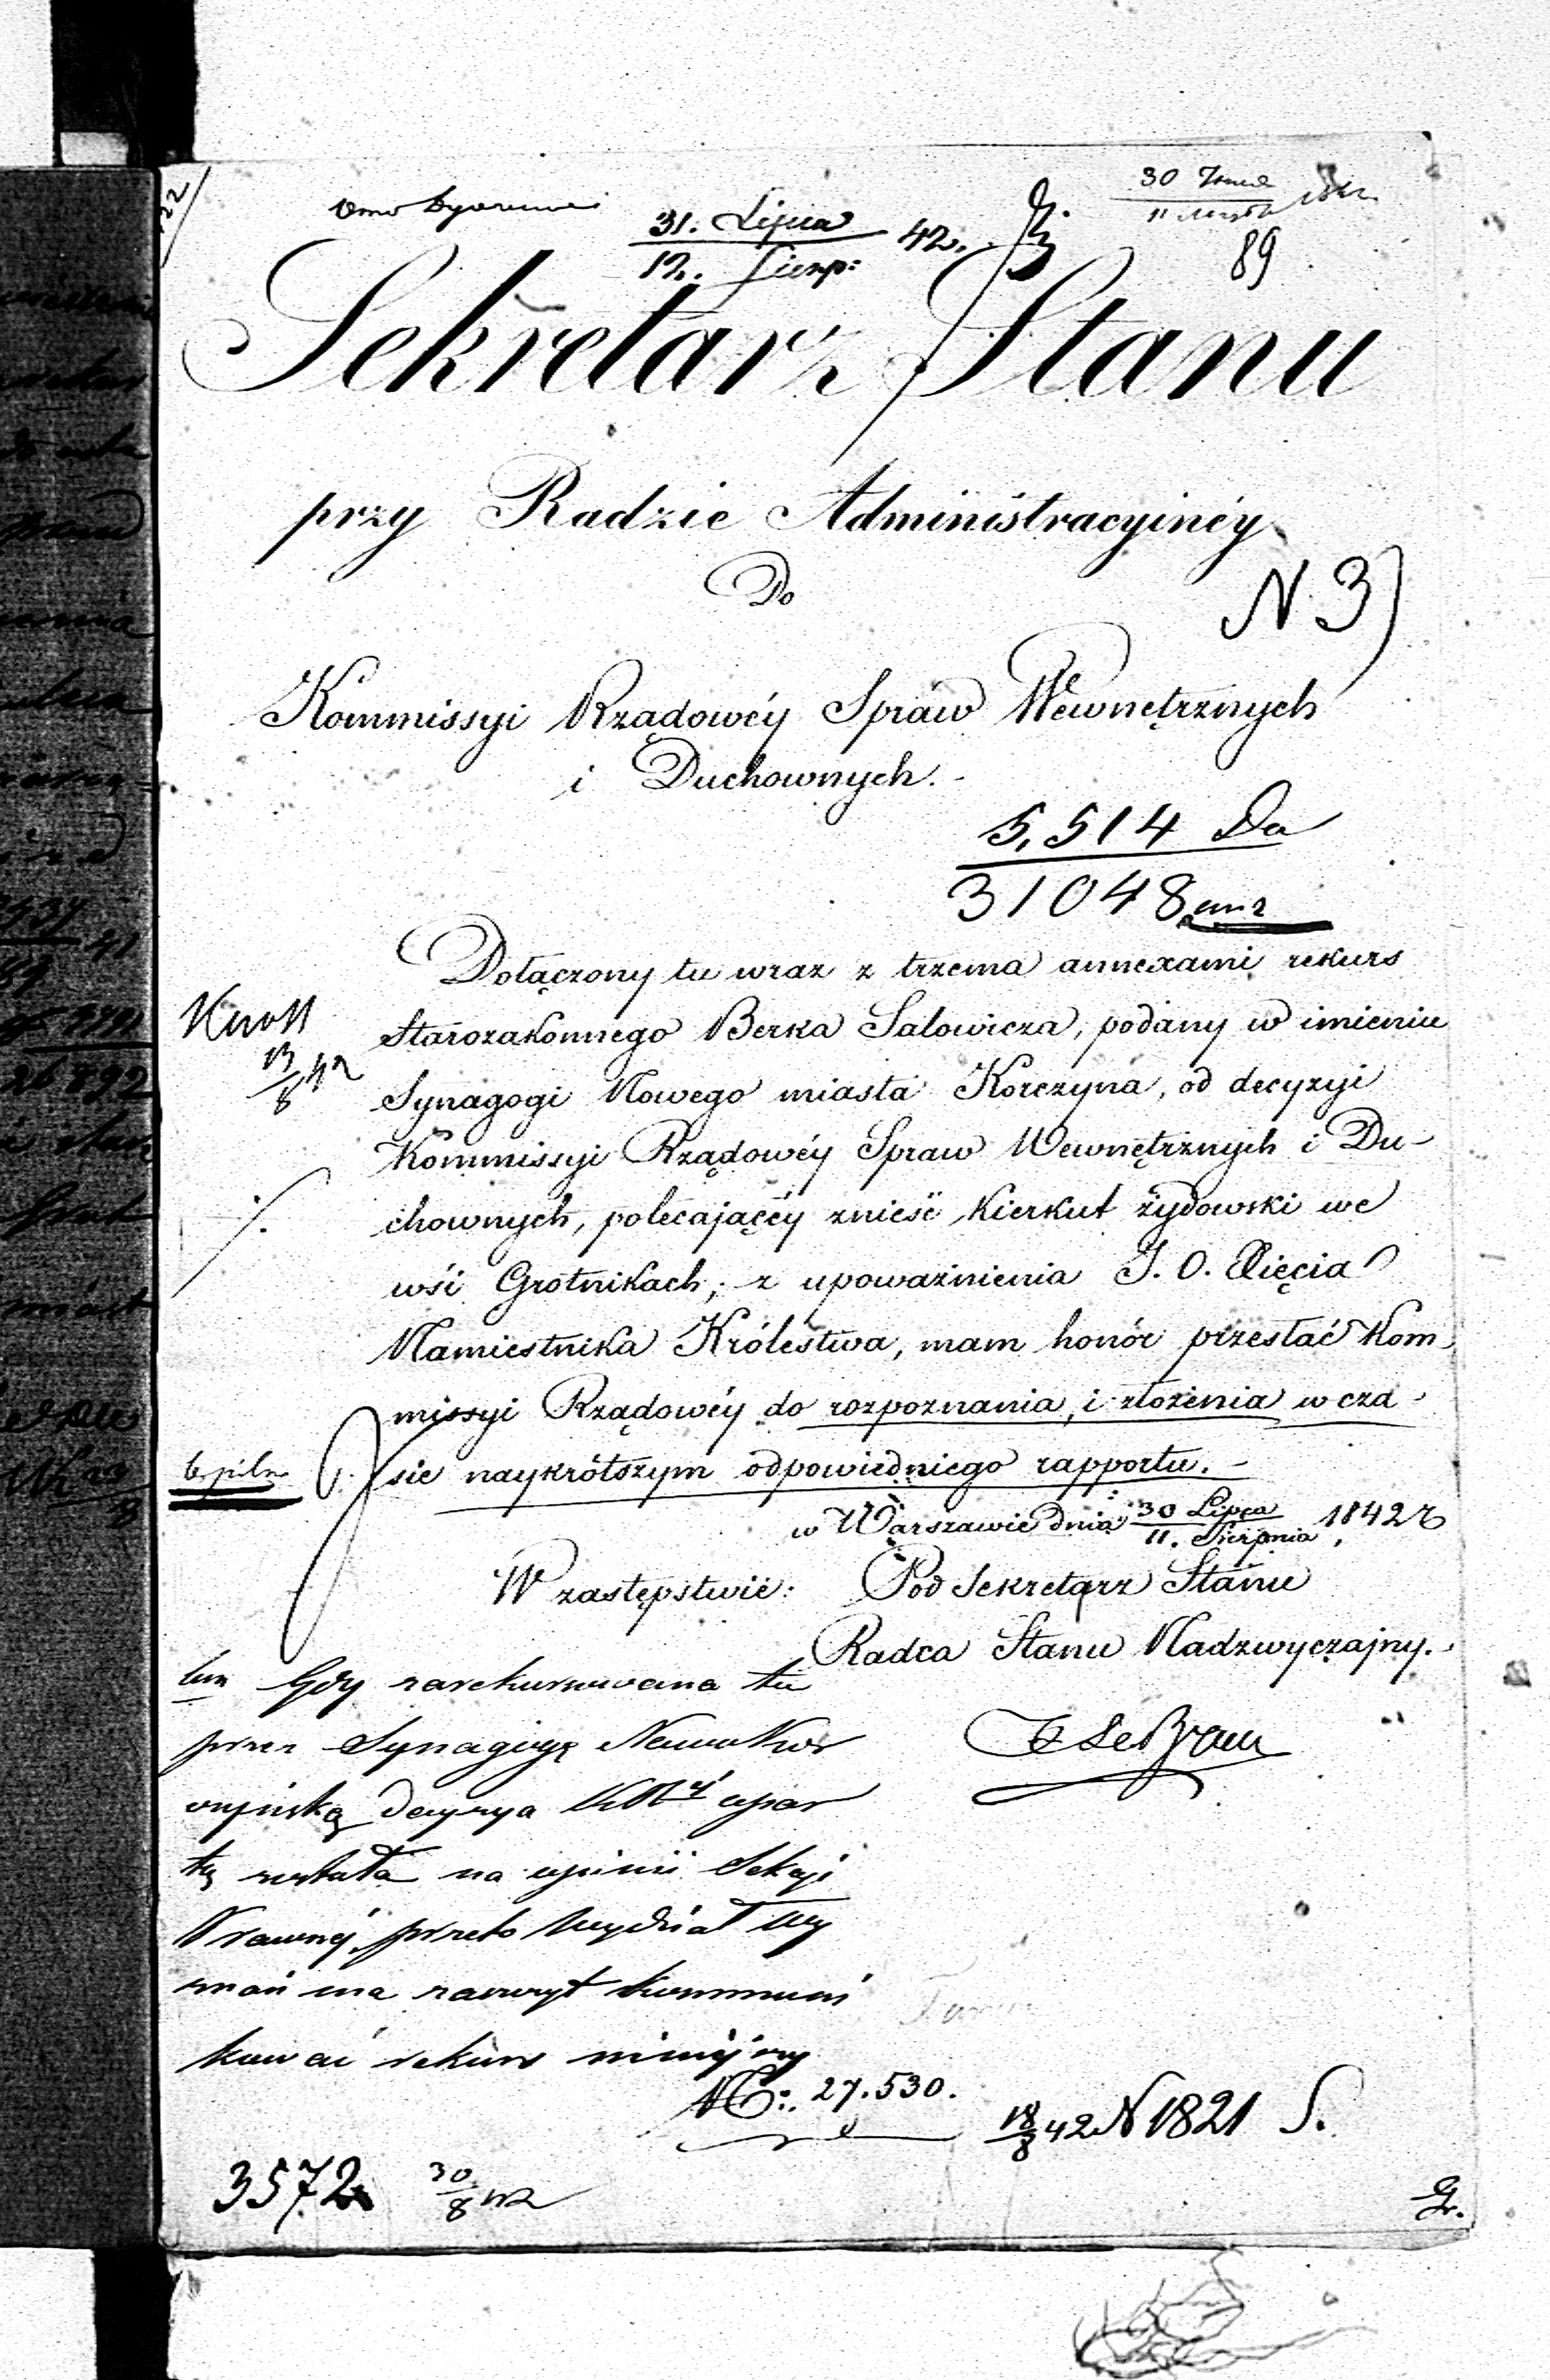 31. Lipca
12. Sierp: 42.
30
11 1842
89
Sekretarz Stanu
przy Radzie Administracyinéy
Do
N 3)
Kommissyi Rządowéy Spraw Wewnętrznych
i Duchownych.-
5,514 Da
31048
Dołączony tu wraz z trzema annexami rekurs
Starozakonnego Berka Salowicza, podany w imieniu
Synagogi Nowego miasta Korczyna, od decyzyi
Kommissyi Rządowéy Spraw Wewnętrznych i Du-
chownych, polecającéy znieść kierkut żydowski we
wśi Grotnikach; z upoważnienia J. O. Xięcia
Namiestnika Królestwa, mam honór przesłać Kom
missyi Rządowéy do rozpoznania, i złożenia w cza-
sie naykrótszym odpowiedniego rapportu.-
w Warszawie dnia 30 Lipca
11. Sierpnia 1842 r
W zastępstwie: Pod Sekretarz Stanu
Radca Stanu Nadzwyczajny.
13
8 42
Gdy zarekursowana tu
przez Synagogę Nowo Kor
czyńską decyzya opar
tą została na opinii Sekcyi
Prawnéj, przeto Wydział
znań ma zaraz kommuni
kować rekurs niniéjszy
N: 27.530.
18
8 42 N 1821 S.
3572 30
8 42